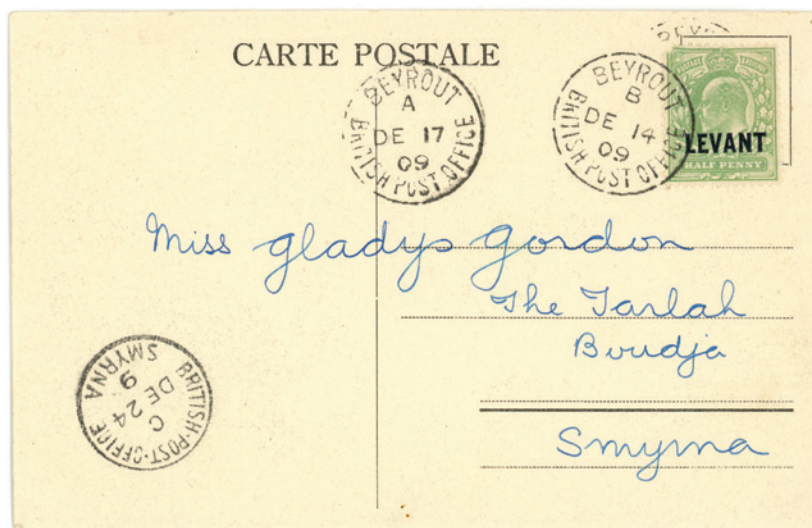 CARTE POSTALE
BEYROUT
A
DE 17
09
BRITISH POST OFFICE
BEYROUT
B
DE 14
09
BRITISH POST OFFICE
POSTAGE
LEVANT
HALF PENNY
Miss Gladys Gordon
The Tarlah
Boudja
Smyrna
BRITISH·POST·OFFICE
C
DE 24
9
SMYRNA